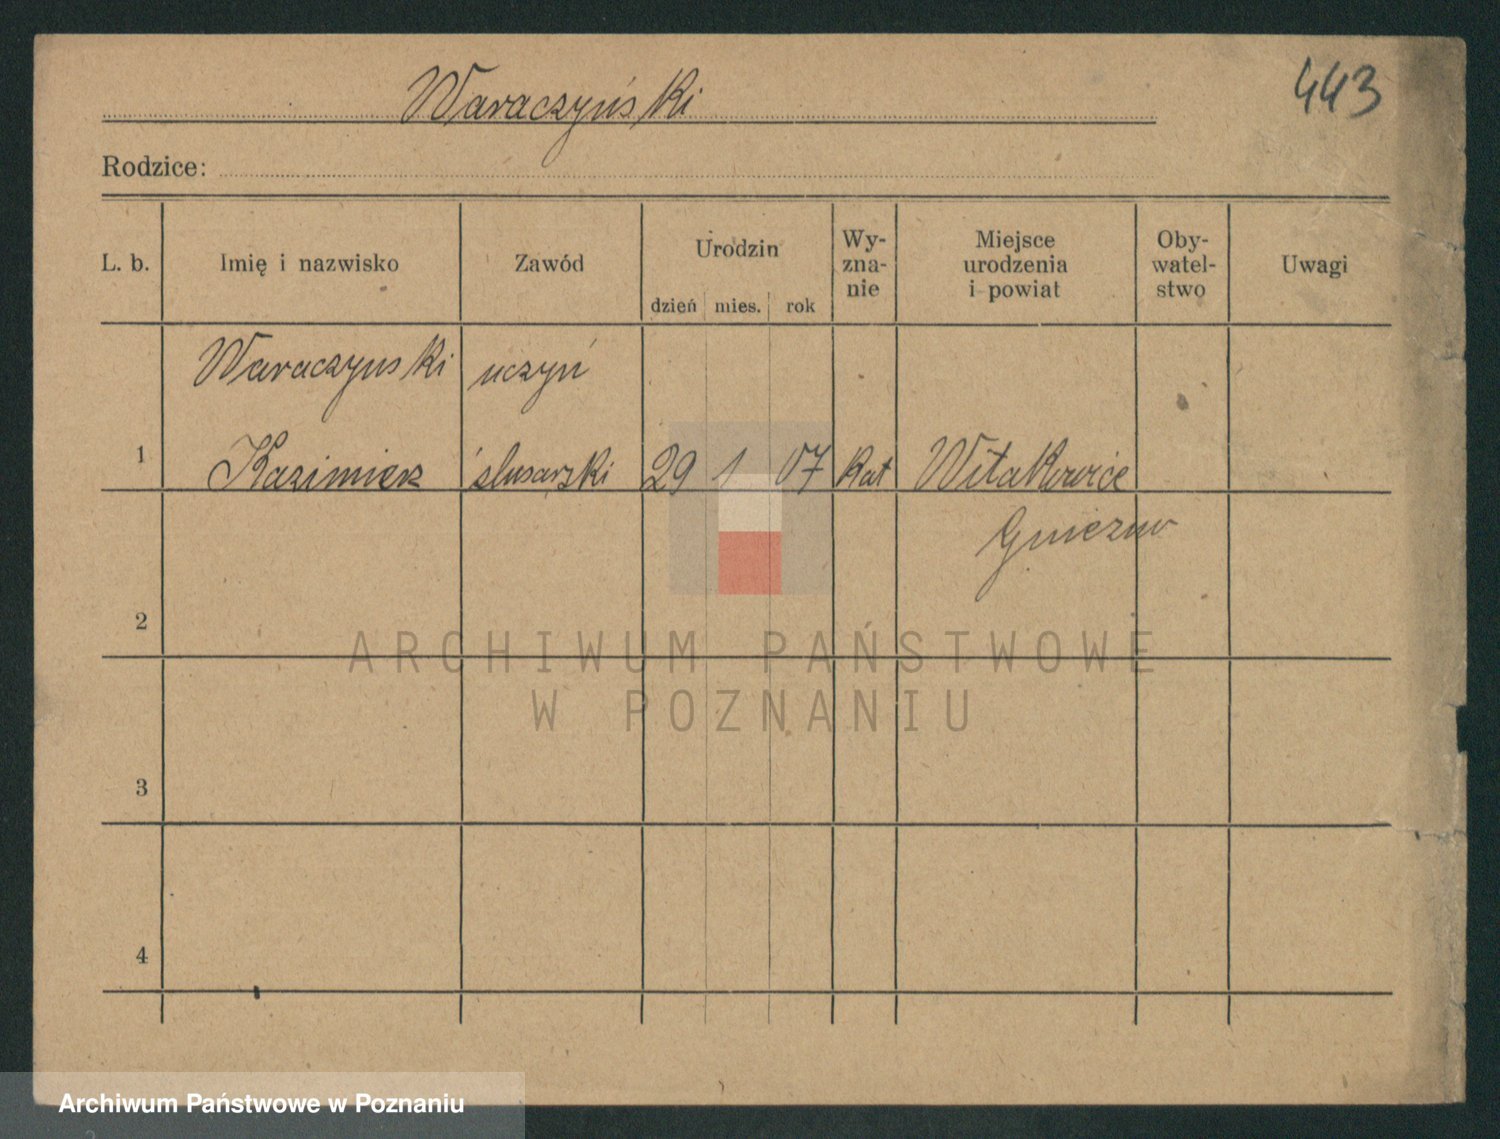 Waraczyński
443
Rodzice:
L. b.
Imię i nazwisko
Zawód
Urodzin
dzień mies. rok
Wy-
zna-
nie
Miejsce
urodzenia
i powiat
Oby-
watel-
stwo
Uwagi
Waraczynski uczyń
1 Kazimierz ślusarski 29 1 07 Kat Witakowice
Gniezno
2
3
4
ARCHIWUM PAŃSTWOWE
W POZNANIU
Archiwum Państwowe w Poznaniu